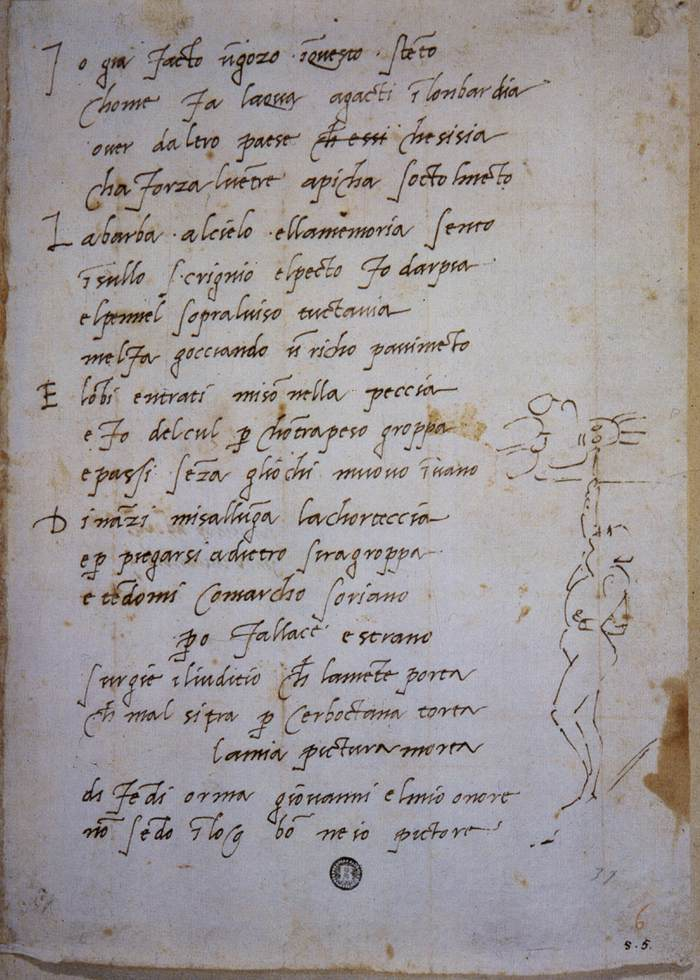 I o gia facto ūgozo īquesto steto
chome fa laqua agacti īlonbardia
over daltro paese ch̄ essi chesisia
cha forza lvētre apicha socto lmēto
L abarba alcielo ellamemoria sento
īsullo scrignio elpecto fo darpia
elpennel sopralviso tuctavia
melfa gocciando ū richo pavimēto
E lōbi entrati misō nella peccia
e fo delcul p̄ chōtrapeso groppa
epassi sēza gliochi muovo īvano
D inãzi misallūga lachorteccia
ep̄ piegarsi adietro siragroppa
e tēdomi comarcho soriano
p̄o fallace e strano
surgie iliuditio ch̄ lamēte porta
ch̄ mal sitra p̄ cerboctana torta
lamia pictura morta
di fēdi orma giovanni elmio onore
nō sēdo īlog bō ne io pictore
37
6
8.5.